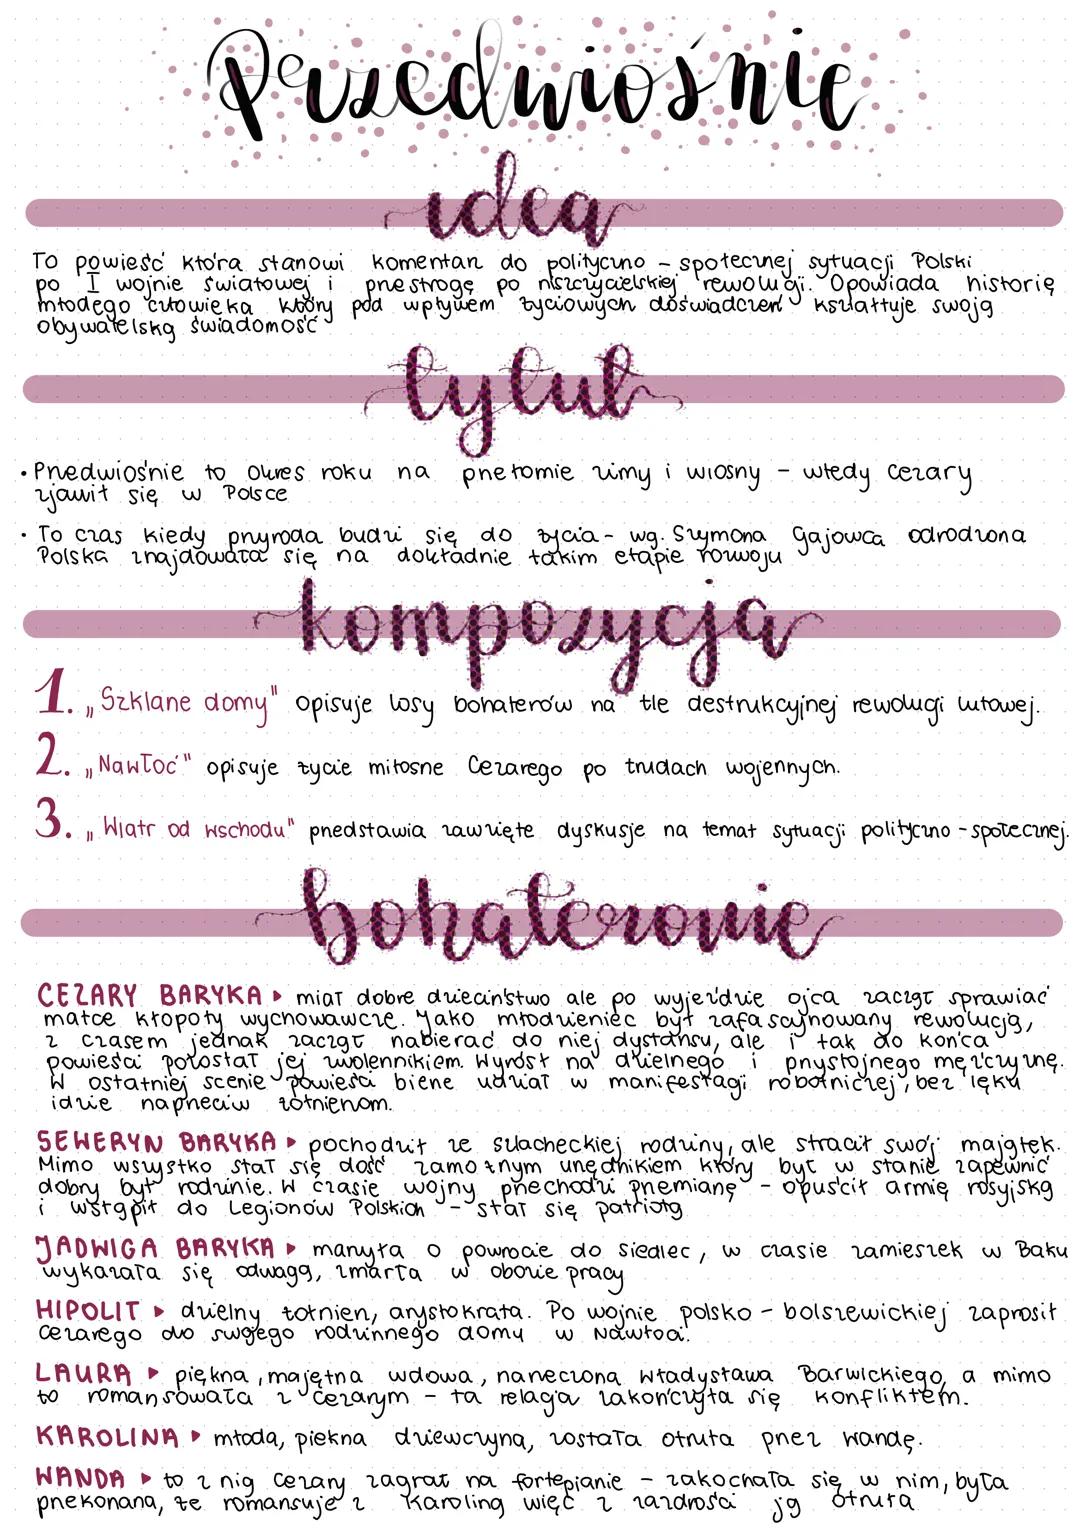 Przedwiośnie
idea
To powieść która stanowi komentarz do polityczno - społecznej sytuacji Polski
po I wojnie światowej i przestrogę po niszczycielskiej rewolucji. Opowiada historię
młodego człowieka który pod wpływem życiowych doświadczeń kształtuje swoją
obywatelską świadomość
tytuł
• Przedwiośnie to okres roku na przełomie zimy i wiosny - wtedy Cezary
zjawił się w Polsce
• To czas kiedy przyroda budzi się do życia - wg. Szymona Gajowca odrodzona
Polska znajdowała się na dokładnie takim etapie rozwoju
kompozycja
1. „Szklane domy" opisuje losy bohaterów na tle destrukcyjnej rewolucji lutowej.
2. „Nawłoć" opisuje życie miłosne Cezarego po trudach wojennych.
3. „Wiatr od wschodu" przedstawia zawzięte dyskusje na temat sytuacji polityczno - społecznej.
bohaterowie
CEZARY BARYKA ▸ miał dobre dzieciństwo ale po wyjeździe ojca zaczął sprawiać
matce kłopoty wychowawcze. Jako młodzieniec był zafascynowany rewolucją,
z czasem jednak zaczął nabierać do niej dystansu, ale i tak do końca
powieści pozostał jej zwolennikiem. Wyrósł na dzielnego i przystojnego mężczyznę.
W ostatniej scenie powieści bierze udział w manifestacji robotniczej, bez lęku
idzie naprzeciw żołnierzom.
SEWERYN BARYKA ▸ pochodził ze szlacheckiej rodziny, ale stracił swój majątek.
Mimo wszystko stał się dość zamożnym urzędnikiem który był w stanie zapewnić
dobry byt rodzinie. W czasie wojny przechodzi przemianę - opuścił armię rosyjską
i wstąpił do Legionów Polskich - stał się patriotą
JADWIGA BARYKA ▸ marzyła o powrocie do siedlec, w czasie zamieszek w Baku
wykazała się odwagą, zmarła w obozie pracy
HIPOLIT ▸ dzielny żołnierz, arystokrata. Po wojnie polsko - bolszewickiej zaprosił
Cezarego do swojego rodzinnego domu w Nawłoci.
LAURA ▸ piękna, majętna wdowa, narzeczona Władysława Barwickiego, a mimo
to romansowała z Cezarym - ta relacja zakończyła się konfliktem.
KAROLINA ▸ młoda, piękna dziewczyna, została otruta przez Wandę.
WANDA ▸ to z nią Cezary zagrał na fortepianie - zakochała się w nim, była
przekonana, że romansuje z Karoliną więc z zazdrości ją otruła